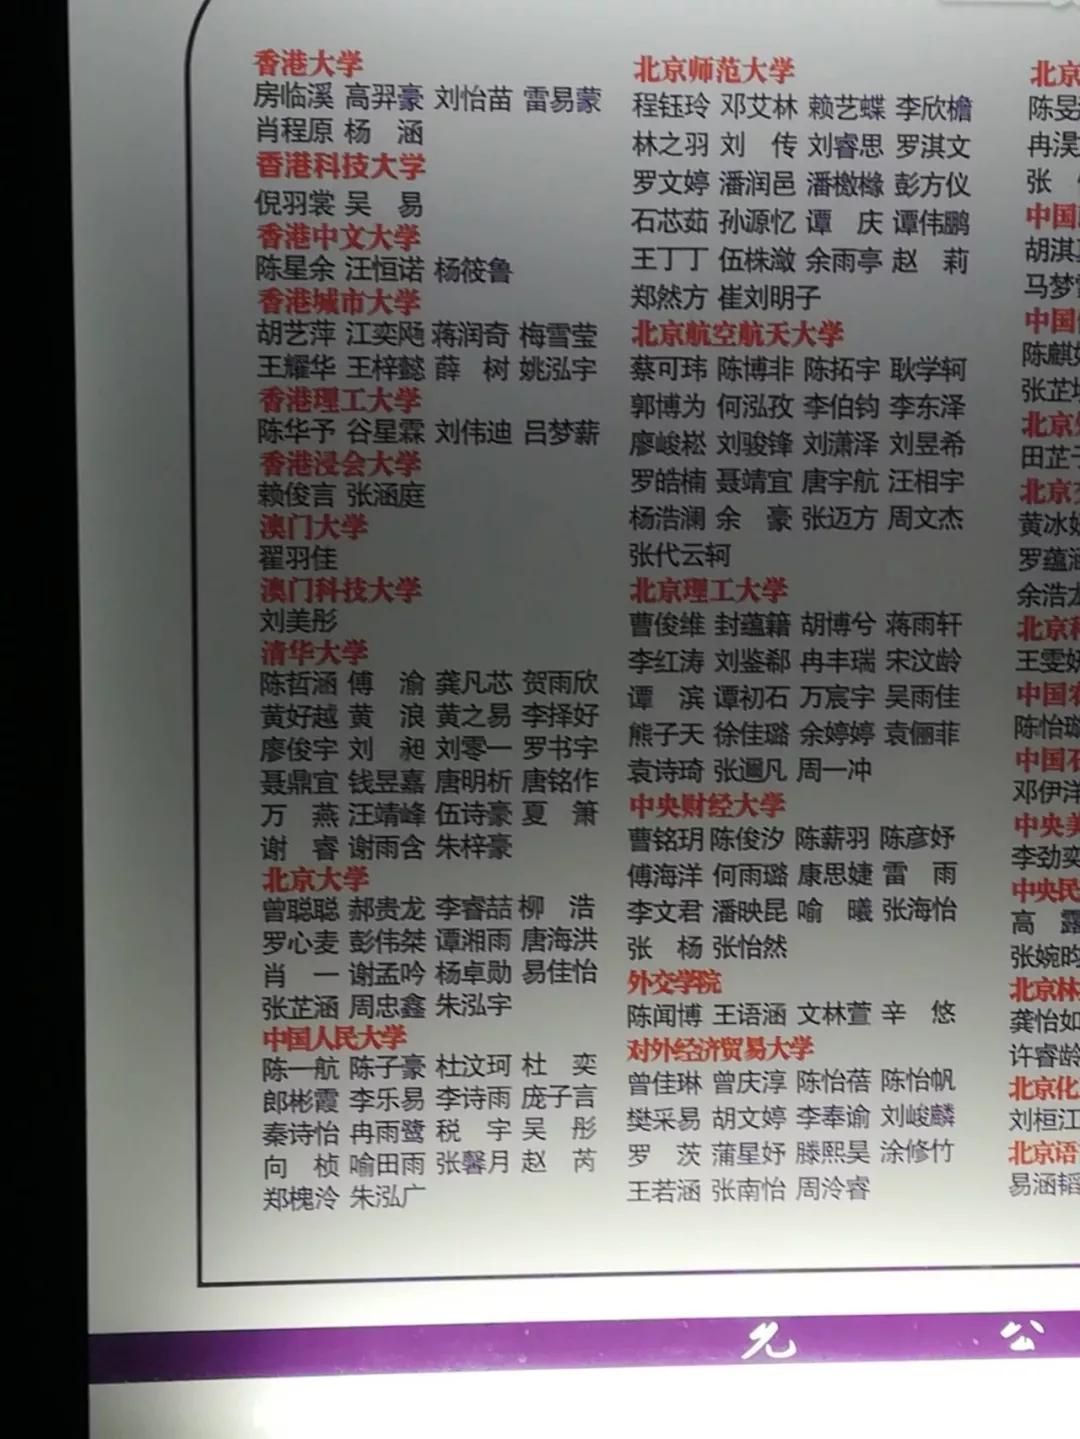 香港大学
房临溪 高羿豪 刘怡苗 雷易蒙
肖程原 杨 涵
香港科技大学
倪羽裳 吴 易
香港中文大学
陈星余 汪恒诺 杨筱鲁
香港城市大学
胡艺萍 江奕飏 蒋润奇 梅雪莹
王耀华 王梓懿 薛 树 姚泓宇
香港理工大学
陈华予 谷星霖 刘伟迪 吕梦薪
香港浸会大学
赖俊言 张涵庭
澳门大学
翟羽佳
澳门科技大学
刘美彤
清华大学
陈哲涵 傅 渝 龚凡芯 贺雨欣
黄好越 黄 浪 黄之易 李择好
廖俊宇 刘 昶 刘零一 罗书宇
聂鼎宜 钱昱嘉 唐明析 唐铭作
万 燕 汪靖峰 伍诗豪 夏 箫
谢 睿 谢雨含 朱梓豪
北京大学
曾聪聪 郝贵龙 李睿喆 柳 浩
罗心麦 彭伟桀 谭湘雨 唐海洪
肖 一 谢孟吟 杨卓勋 易佳怡
张芷涵 周忠鑫 朱泓宇
中国人民大学
陈一航 陈子豪 杜汶珂 杜 奕
郎彬霞 李乐易 李诗雨 庞子言
秦诗怡 冉雨鹭 税 宇 吴 彤
向 桢 喻田雨 张馨月 赵 芮
郑槐泠 朱泓广
北京师范大学
程钰玲 邓艾林 赖艺蝶 李欣檐
林之羽 刘 传 刘睿思 罗淇文
罗文婷 潘润邑 潘檄橼 彭方仪
石芯茹 孙源忆 谭 庆 谭伟鹏
王丁丁 伍株潋 余雨亭 赵 莉
郑然方 崔刘明子
北京航空航天大学
蔡可玮 陈博非 陈拓宇 耿学轲
郭博为 何泓孜 李伯钧 李东泽
廖峻崧 刘骏锋 刘潇泽 刘昱希
罗皓楠 聂靖宜 唐宇航 汪相宇
杨浩澜 余 豪 张迈方 周文杰
张代云轲
北京理工大学
曹俊维 封蕴籍 胡博兮 蒋雨轩
李红涛 刘鉴郗 冉丰瑞 宋汶龄
谭 滨 谭初石 万宸宇 吴雨佳
熊子天 徐佳璐 余婷婷 袁俪菲
袁诗琦 张邇凡 周一冲
中央财经大学
曹铭玥 陈俊汐 陈薪羽 陈彦妤
傅海洋 何雨璐 康思婕 雷 雨
李文君 潘映昆 喻 曦 张海怡
张 杨 张怡然
外交学院
陈闻博 王语涵 文林萱 辛 悠
对外经济贸易大学
曾佳琳 曾庆淳 陈怡蓓 陈怡帆
樊采易 胡文婷 李奉谕 刘峻麟
罗 茨 蒲星妤 滕熙昊 涂修竹
王若涵 张南怡 周泠睿
北京
陈旻
冉淏
张
中国
胡淇
马梦
中国
陈麒
张芷
北京
田芷
北京
黄冰
罗蕴
余浩
北京
王雯
中国
陈怡
中国石
邓伊洋
中央美
李劲奕
中央民
高 露
张婉昀
北京林
龚怡如
许睿龄
北京化
刘桓江
北京语
易涵韬
允 公